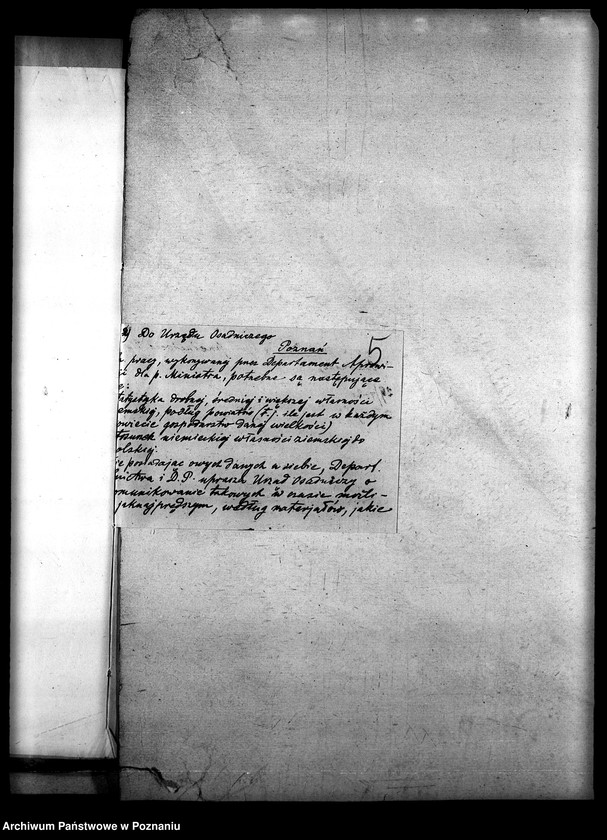 2) Do Urzędu Osadniczego
Poznań
5
pracy, wykonywanej przez Departament Aprowi-
dla p. Ministra, potrzebne są następujące
statystyka drobnej, średniej i większej własności
ziemskiej, podług powiatów (t. j. ile jest w każdym
powiecie gospodarstw danej wielkości)
stosunek niemieckiej własności ziemskiej do
polskiej.
nie posiadając owych danych u siebie, Depart.
nictwa i D. P. uprasza Urząd Osadniczy o
omunikowanie takowych w czasie możli-
jaknajprędszym, według materjałów, jakie
Archiwum Państwowe w Poznaniu